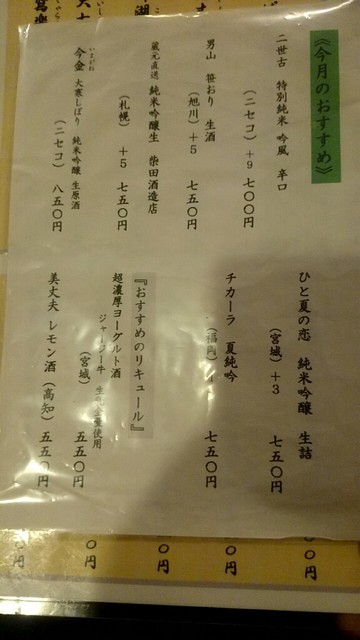 《今月のおすすめ》
二世古 特別純米 吟風 辛口
(ニセコ) +9 七〇〇円
男山 笹おり 生酒
(旭川) +5 七五〇円
蔵元直送 純米吟醸生 柴田酒造店
(札幌) +5 七五〇円
いまがね
今金 大寒しぼり 純米吟醸 生原酒
(ニセコ) 八五〇円
ひと夏の恋 純米吟醸 生詰
(宮城) +3 七五〇円
チカーラ 夏純吟
(福岡) 七五〇円
『おすすめのリキュール』
超濃厚ヨーグルト酒
ジャージー牛 生乳 使用
(宮城) 五五〇円
美丈夫 レモン酒 (高知) 五五〇円
〇円
〇円
〇円
〇円
円